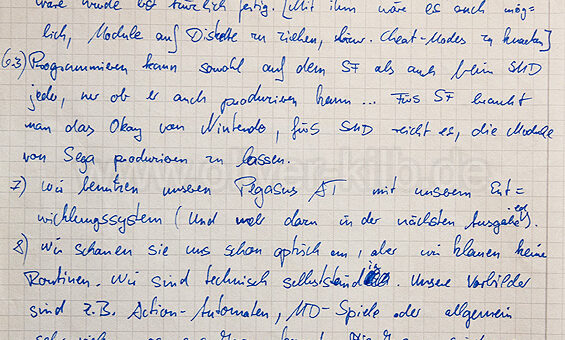 ware wurde erst kürzlich fertig. [Mit ihm wäre es auch mög=
lich, Module auf Diskette zu ziehen, bzw. Cheat-Modes zu knacken]
6.3) Programmieren kann sowohl auf dem SF als auch beim SMD
jeder, nur ob er auch produzieren kann... Fürs SF braucht
man das Okay von Nintendo, fürs SMD reicht es, die Module
von Sega produzieren zu lassen.
7) wir benutzen unseren Pegasus AT mit unserem Ent=
wicklungssystem (Und mehr dazu in der nächsten Ausgabe).
8) Wir schauen sie uns schon optisch an, aber wir klauen keine
Routinen. Wir sind technisch selbstständig. Unsere Vorbilder
sind z.B. Action-Automaten, MD-Spiele oder allgemein